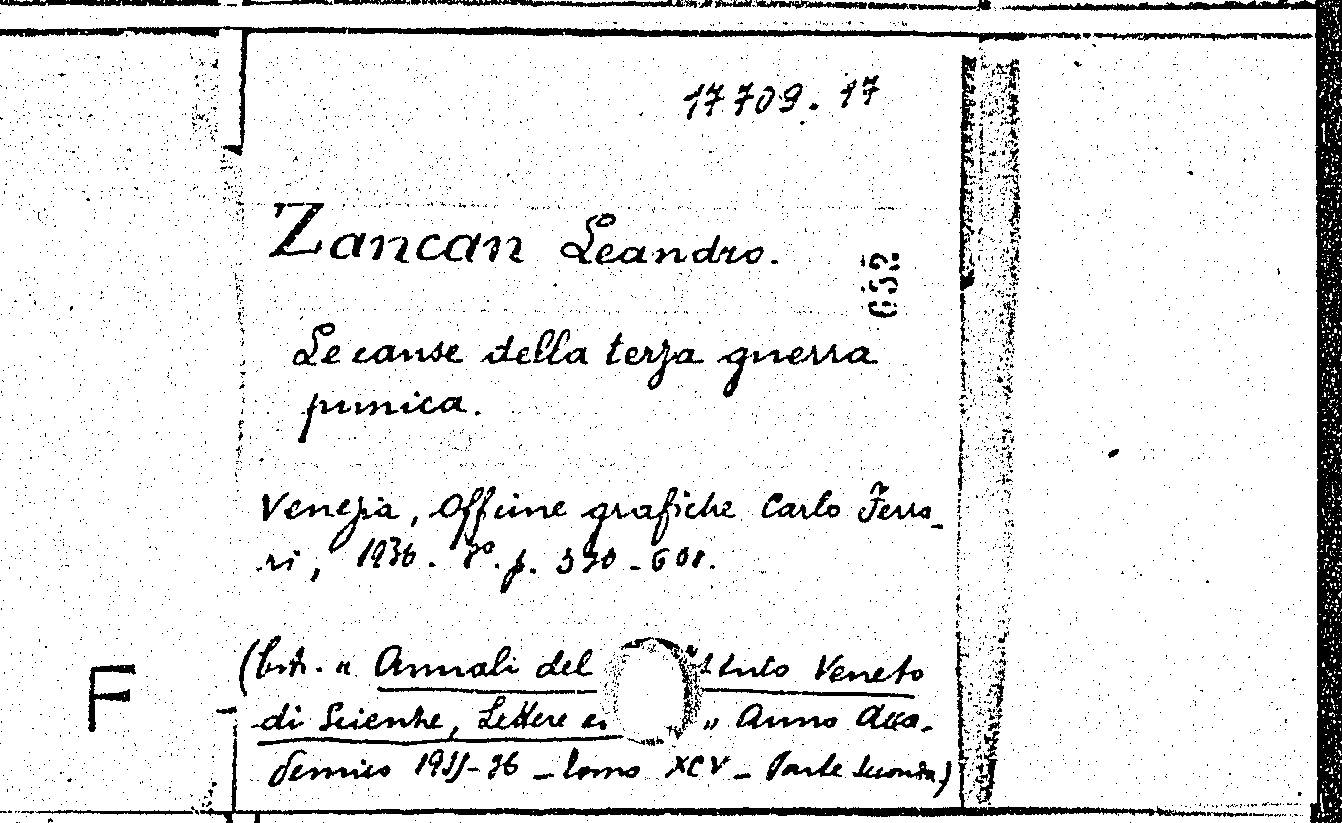 17709.17
Zancan Leandro.
652
Le cause della terza guerra
punica.
Venezia, Officine grafiche Carlo Ferra-
ri, 1936. 8°. p. 590-601.
(Estr. "Annali del tituto Veneto
di Scienze, Lettere ed " Anno Acca-
F
demico 1935-36 - Tomo XCV - Parte seconda)